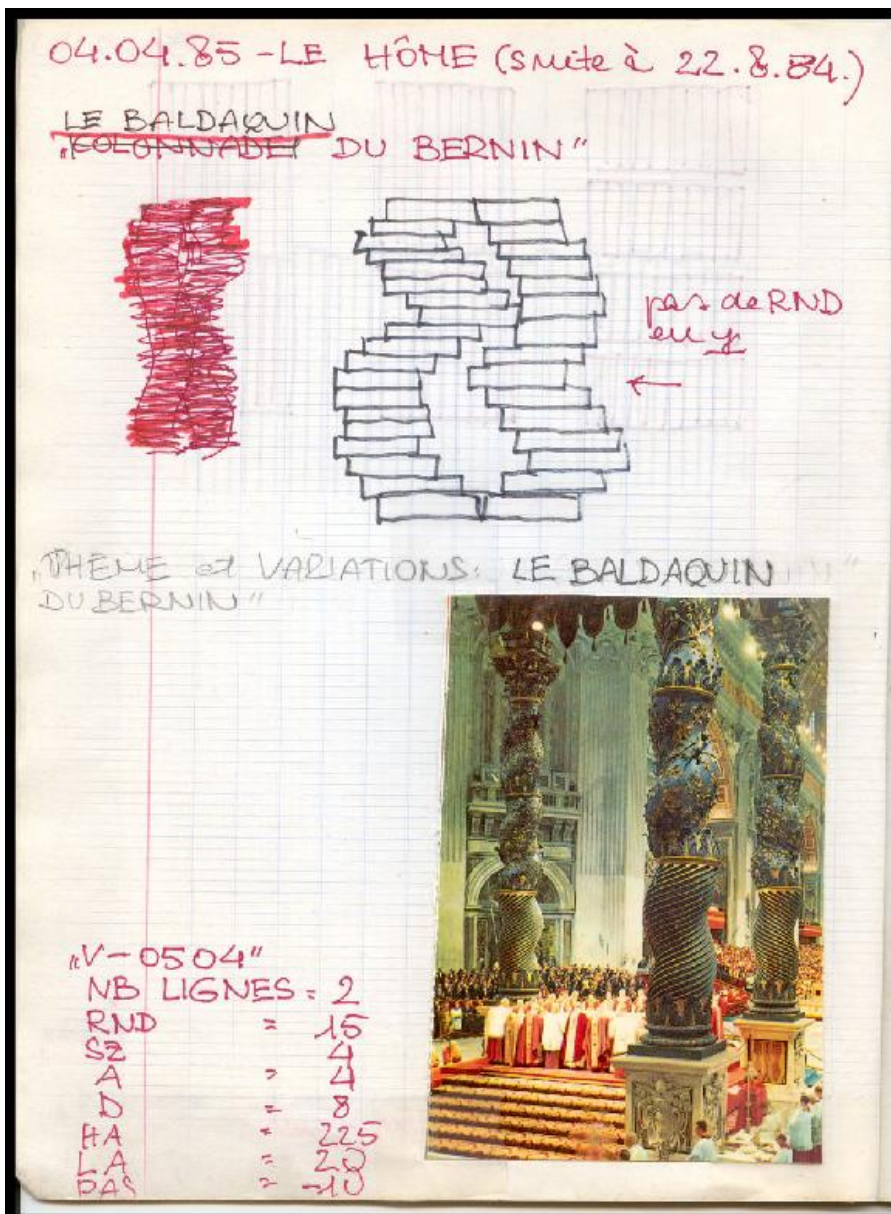 04.04.85 - LE HÔME (suite à 22.8.84.)
LE BALDAQUIN
"COLONNADE DU BERNIN"
pas de RND
en y
"THÈME et VARIATIONS: LE BALDAQUIN"
DU BERNIN"
"V-0504"
NB LIGNES = 2
RND = 15
SZ 4
A = 4
D = 8
HA = 225
LA = 20
PAS = -10